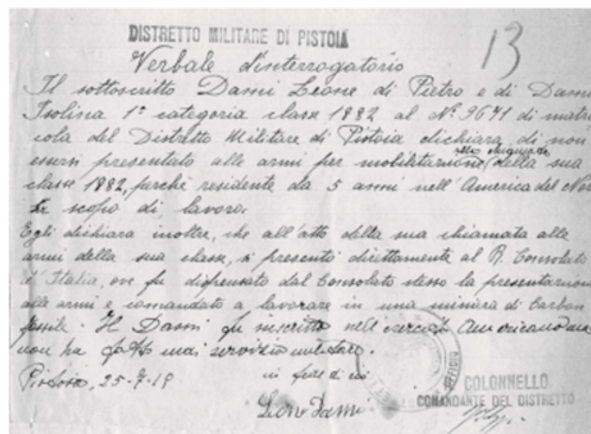 DISTRETTO MILITARE DI PISTOIA
13
Verbale d'interrogatorio
Il sottoscritto Dami Leone di Pietro e di Dami
Isolina 1ª categoria classe 1882 al Nº 9671 di matri
cola del Distretto Militare di Pistoia dichiara di non
essersi presentato alle armi per mobilitazione della sua
classe 1882, perchè residente da 5 anni nell'America del Nor
scopo di lavoro.
Egli dichiara inoltre, che all'atto della sua chiamata alle
armi della sua classe, si presentò direttamente al R. Consolato
d'Italia, ove fu dispensato dal Consolato stesso la presentazione
alle armi e comandato a lavorare in una miniera di Carbon
fossile. Il Dami fu inscritto nell'esercito Americano ma
non ha fatto mai servizio militare.
Pistoia, 25-7-19
in fede di ciò
Leone Dami
UFFICIO
COLONNELLO
COMANDANTE DEL DISTRETTO